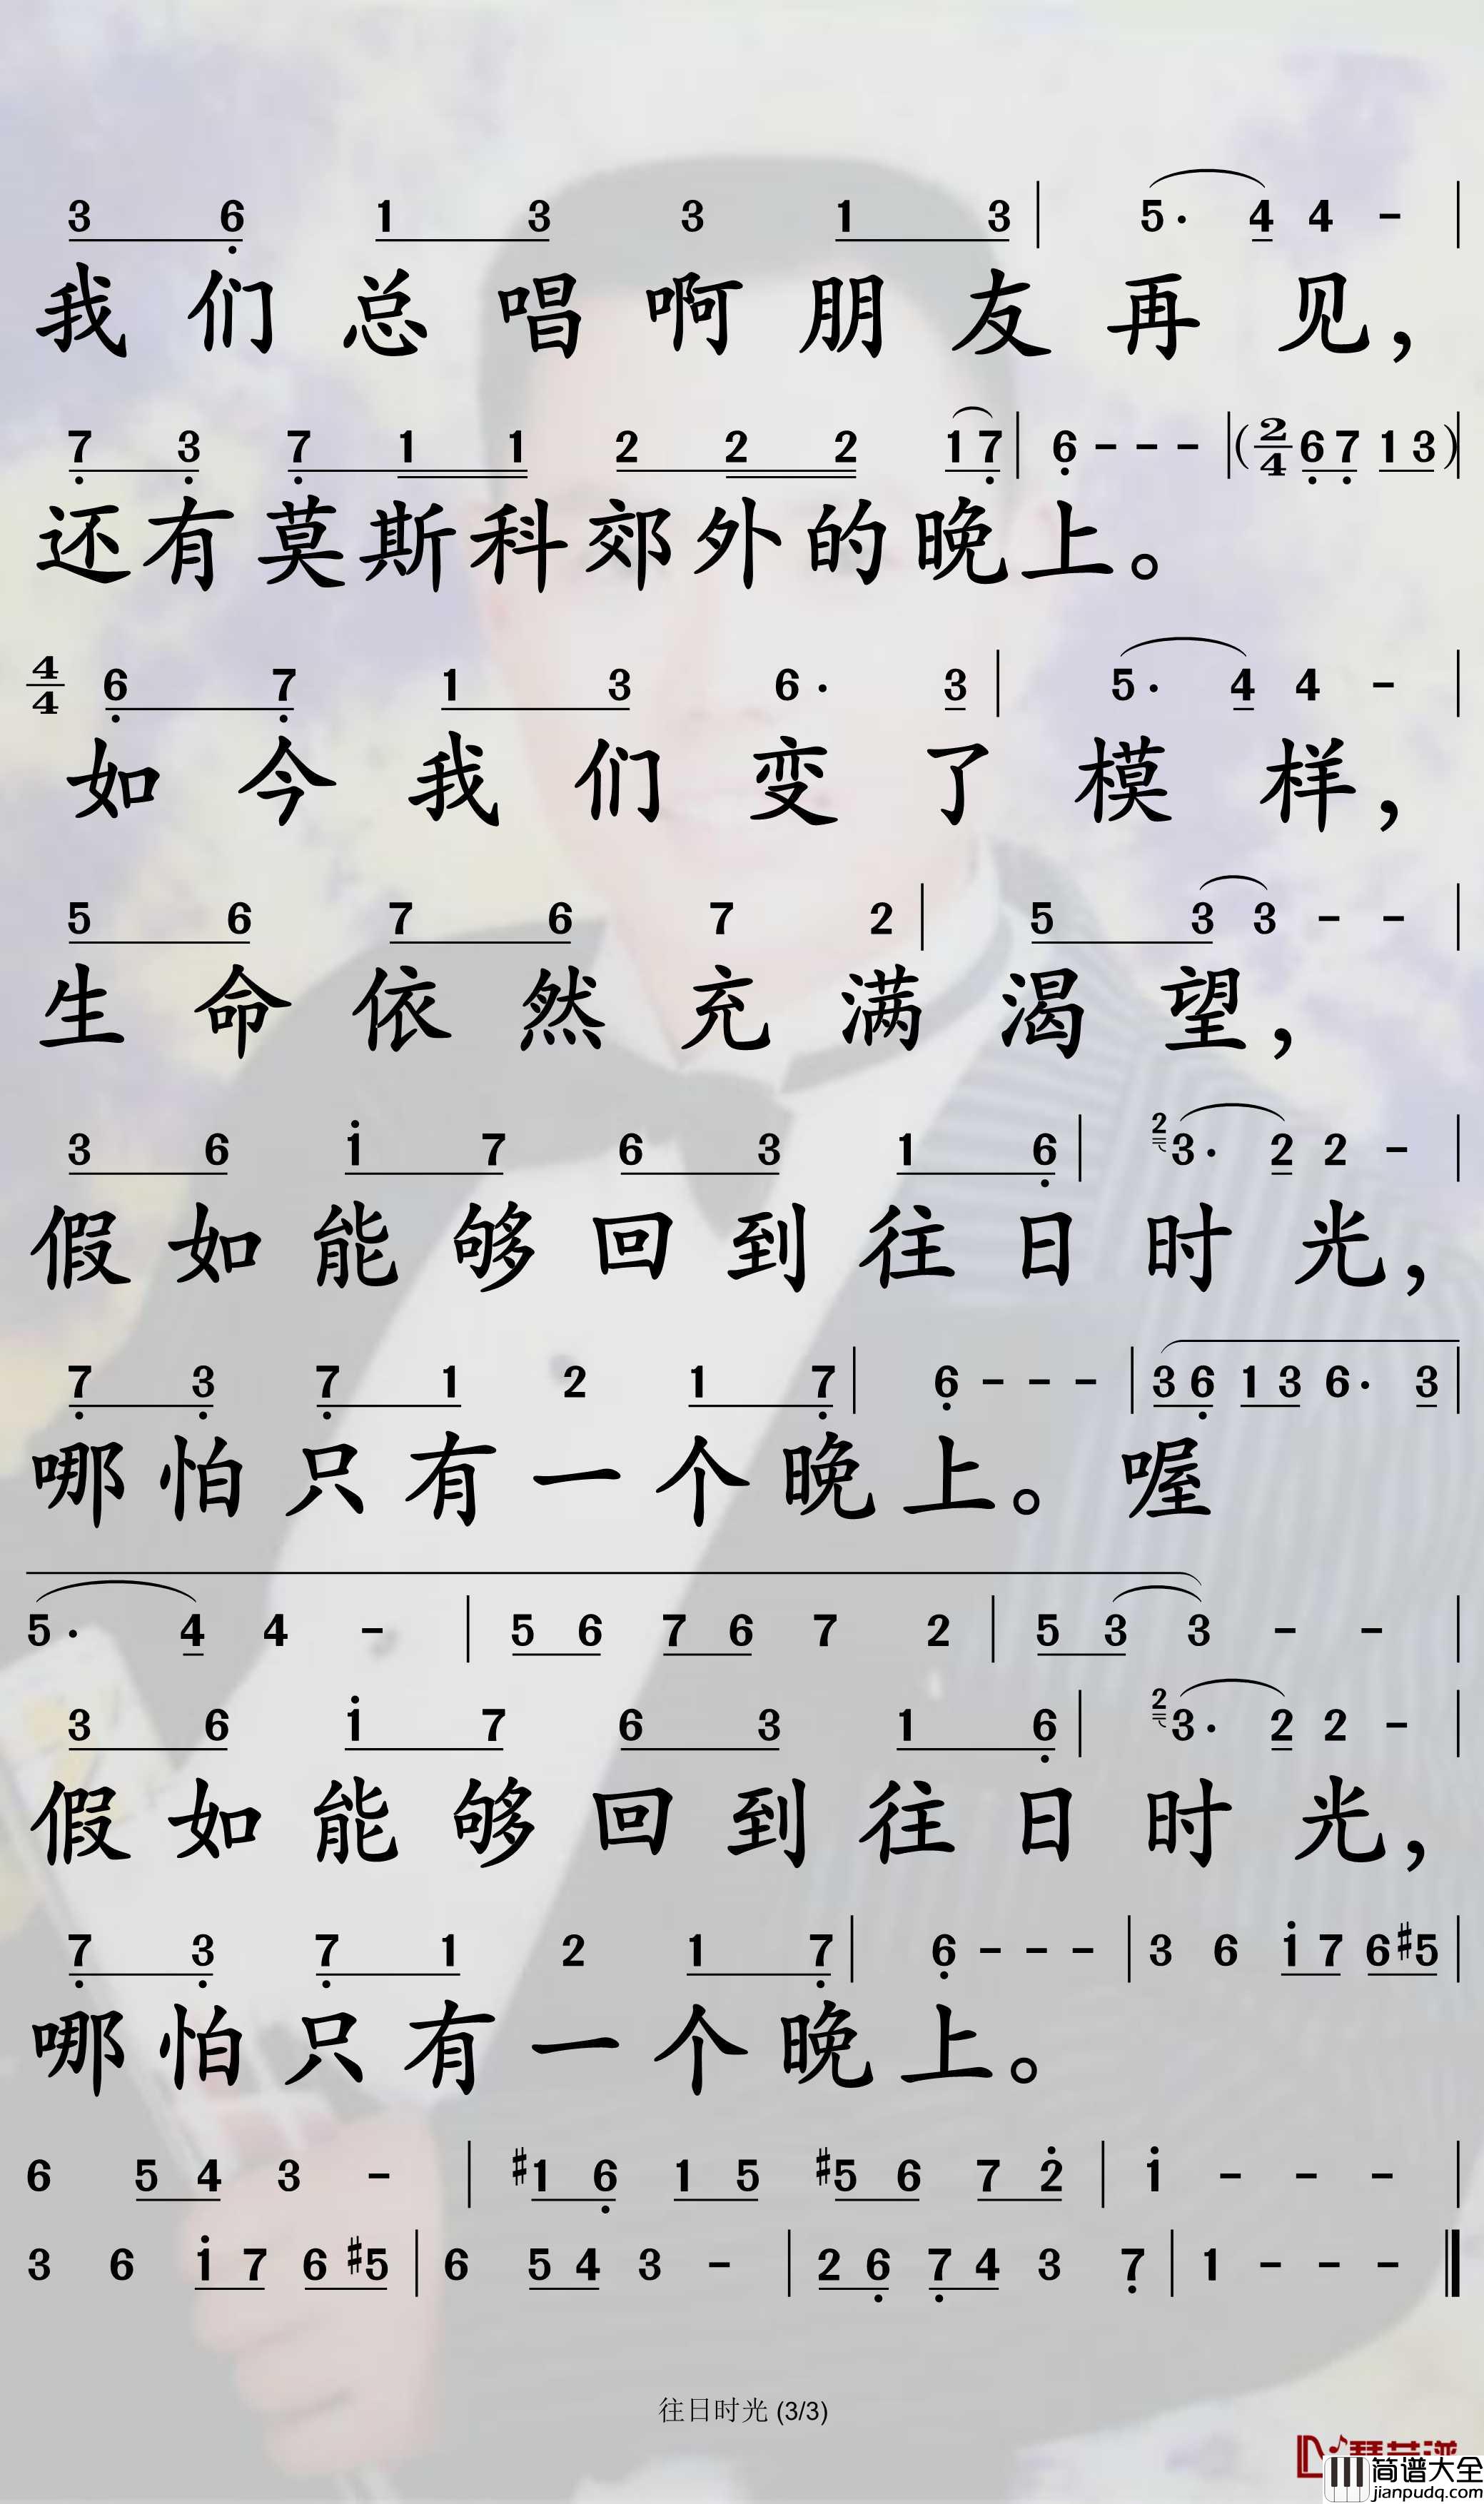 3 6̣ 1 3 3 1 3 | 5· 4 4 - |
我们总唱啊朋友再见，
7̣ 3̣ 7̣ 1 1 2 2 2 1 7̣ | 6̣ - - - | ( 2/4 6̣ 7̣ 1 3 ) |
还有莫斯科郊外的晚上。
4/4 6̣ 7̣ 1 3 6· 3 | 5· 4 4 - |
如今我们变了模样，
5 6 7 6 7 2 | 5 3 3 - - |
生命依然充满渴望，
3 6 1̇ 7 6 3 1 6̣ | 2 3· 2 2 - |
假如能够回到往日时光，
7̣ 3̣ 7̣ 1 2 1 7̣ | 6̣ - - - | 3 6̣ 1 3 6· 3 |
哪怕只有一个晚上。喔
5· 4 4 - | 5 6 7 6 7 2 | 5 3 3 - - |
3 6 1̇ 7 6 3 1 6̣ | 2 3· 2 2 - |
假如能够回到往日时光，
7̣ 3̣ 7̣ 1 2 1 7̣ | 6̣ - - - | 3 6 1̇ 7 6 #5 |
哪怕只有一个晚上。
6 5 4 3 - | #1 6̣ 1 5 #5 6 7 2̇ | 1̇ - - - |
3 6 1̇ 7 6 #5 | 6 5 4 3 - | 2 6̣ 7̣ 4 3 7̣ | 1 - - - ‖
往日时光 (3/3)
简谱大全
jianpudq.com